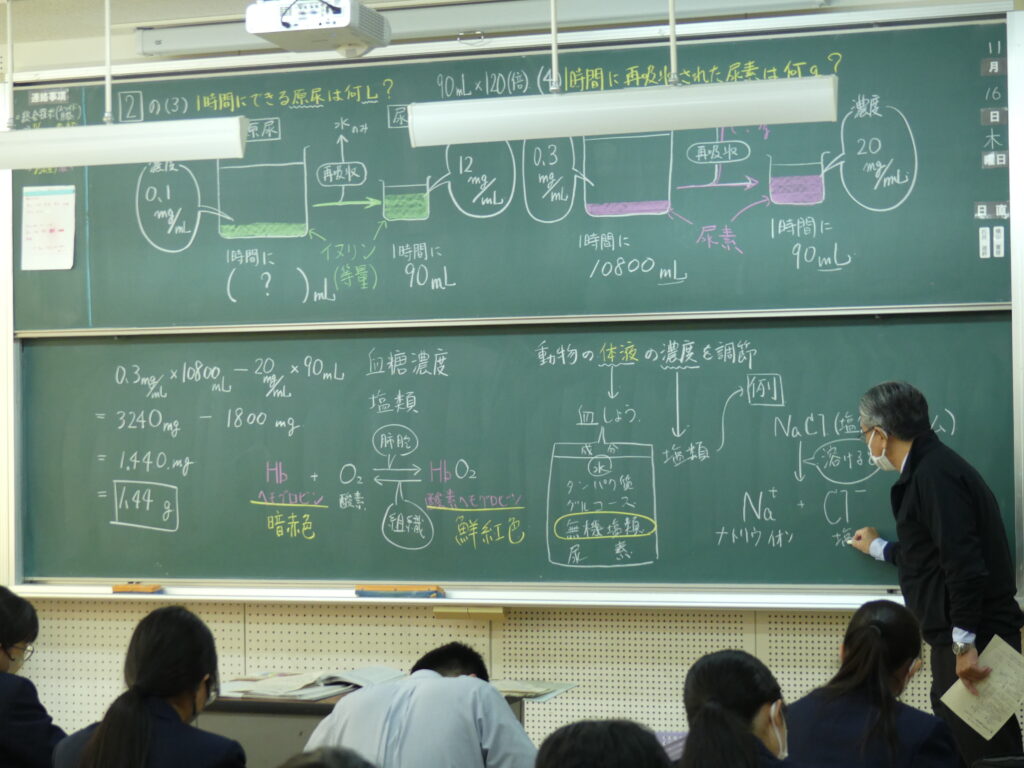 連絡事項
2 の(3) 1時間にできる原尿は何L?
90mL×120(倍)
(4) 1時間に再吸収された尿素は何g?
11
月
16
日
木
曜日
日直
原尿
濃度
0.1
mg/mL
水のみ
再吸収
尿
12
mg/mL
イヌリン
(等量)
1時間に
( ? )mL
1時間に
90mL
0.3
mg/mL
再吸収
濃度
20
mg/mL
尿素
1時間に
10800mL
1時間に
90mL
0.3mg/mL×10800mL－20mg/mL×90mL
= 3240mg － 1800mg
= 1,440.mg
= 1.44 g
血糖濃度
塩類
肺胞
Hb + O₂ HbO₂
ヘモグロビン 酸素 酸素ヘモグロビン
暗赤色 組織 鮮紅色
動物の体液の濃度を調節
血しょう
成分
水
タンパク質
グルコース
無機塩類
尿素
塩類
例
NaCl(塩
ム)
溶ける
Na⁺ + Cl⁻
ナトリウムイオン 塩